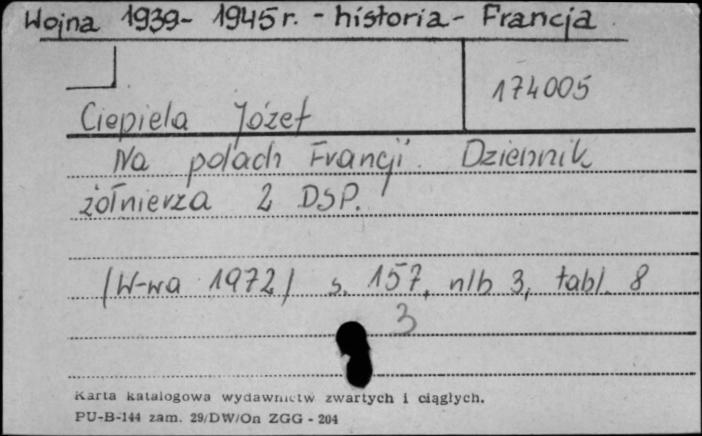 Wojna 1939-1945r. - historia - Francja
174005
Ciepiela Józef
Na polach Francji. Dziennik
żołnierza 2 DSP.
/W-wa 1972/ s. 157, nlb 3, tabl. 8
3
Karta katalogowa wydawnictw zwartych i ciągłych.
PU-B-144 zam. 29/DW/On ZGG - 204